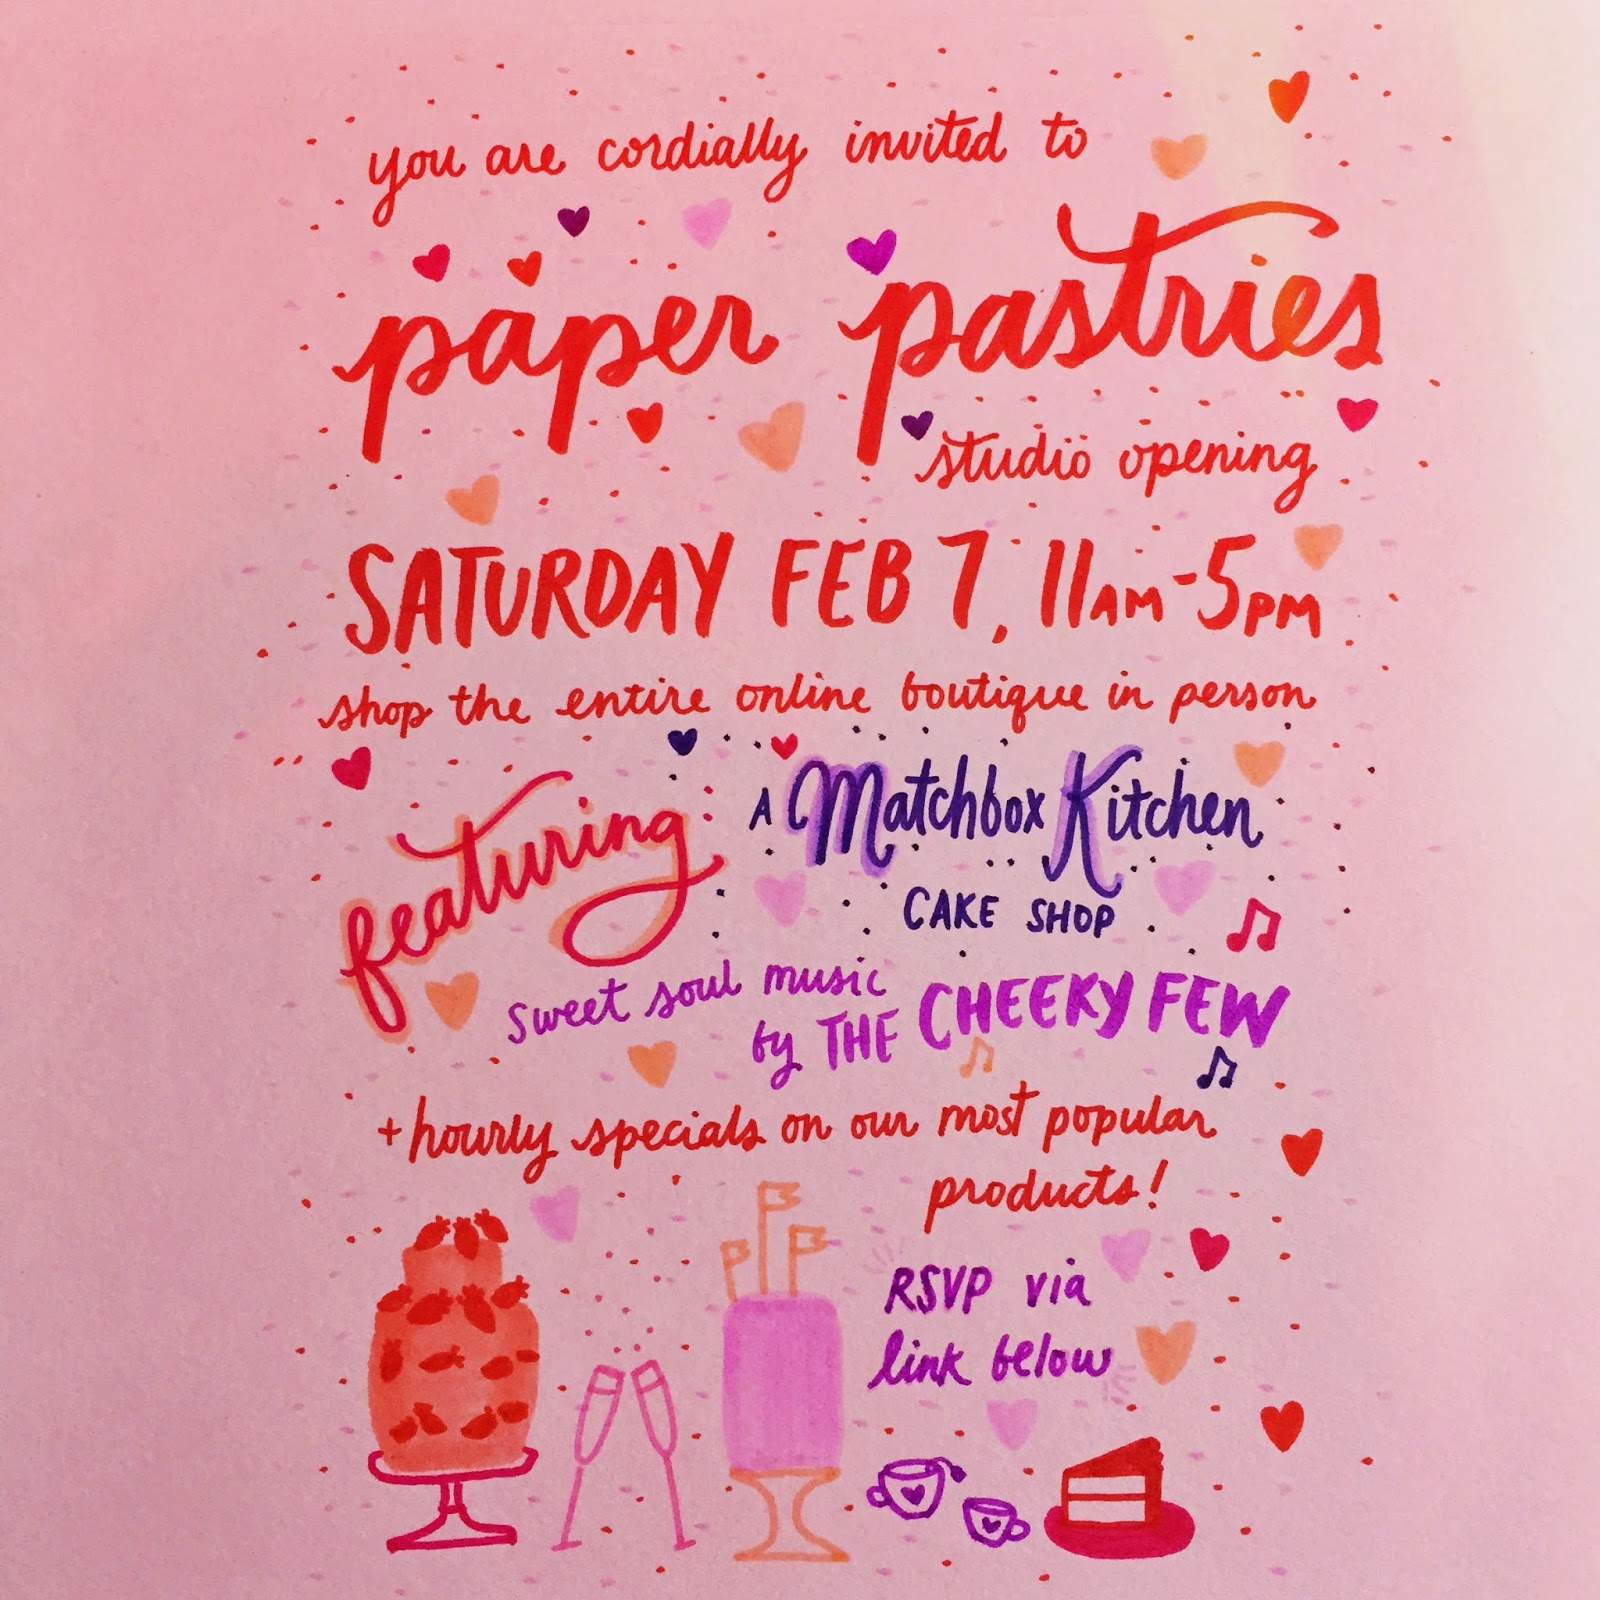 you are cordially invited to
paper pastries
studio opening
SATURDAY FEB 7, 11AM-5PM
shop the entire online boutique in person
featuring
A Matchbox Kitchen
CAKE SHOP
sweet soul music
by THE CHEEKY FEW
+ hourly specials on our most popular
products!
RSVP via
link below